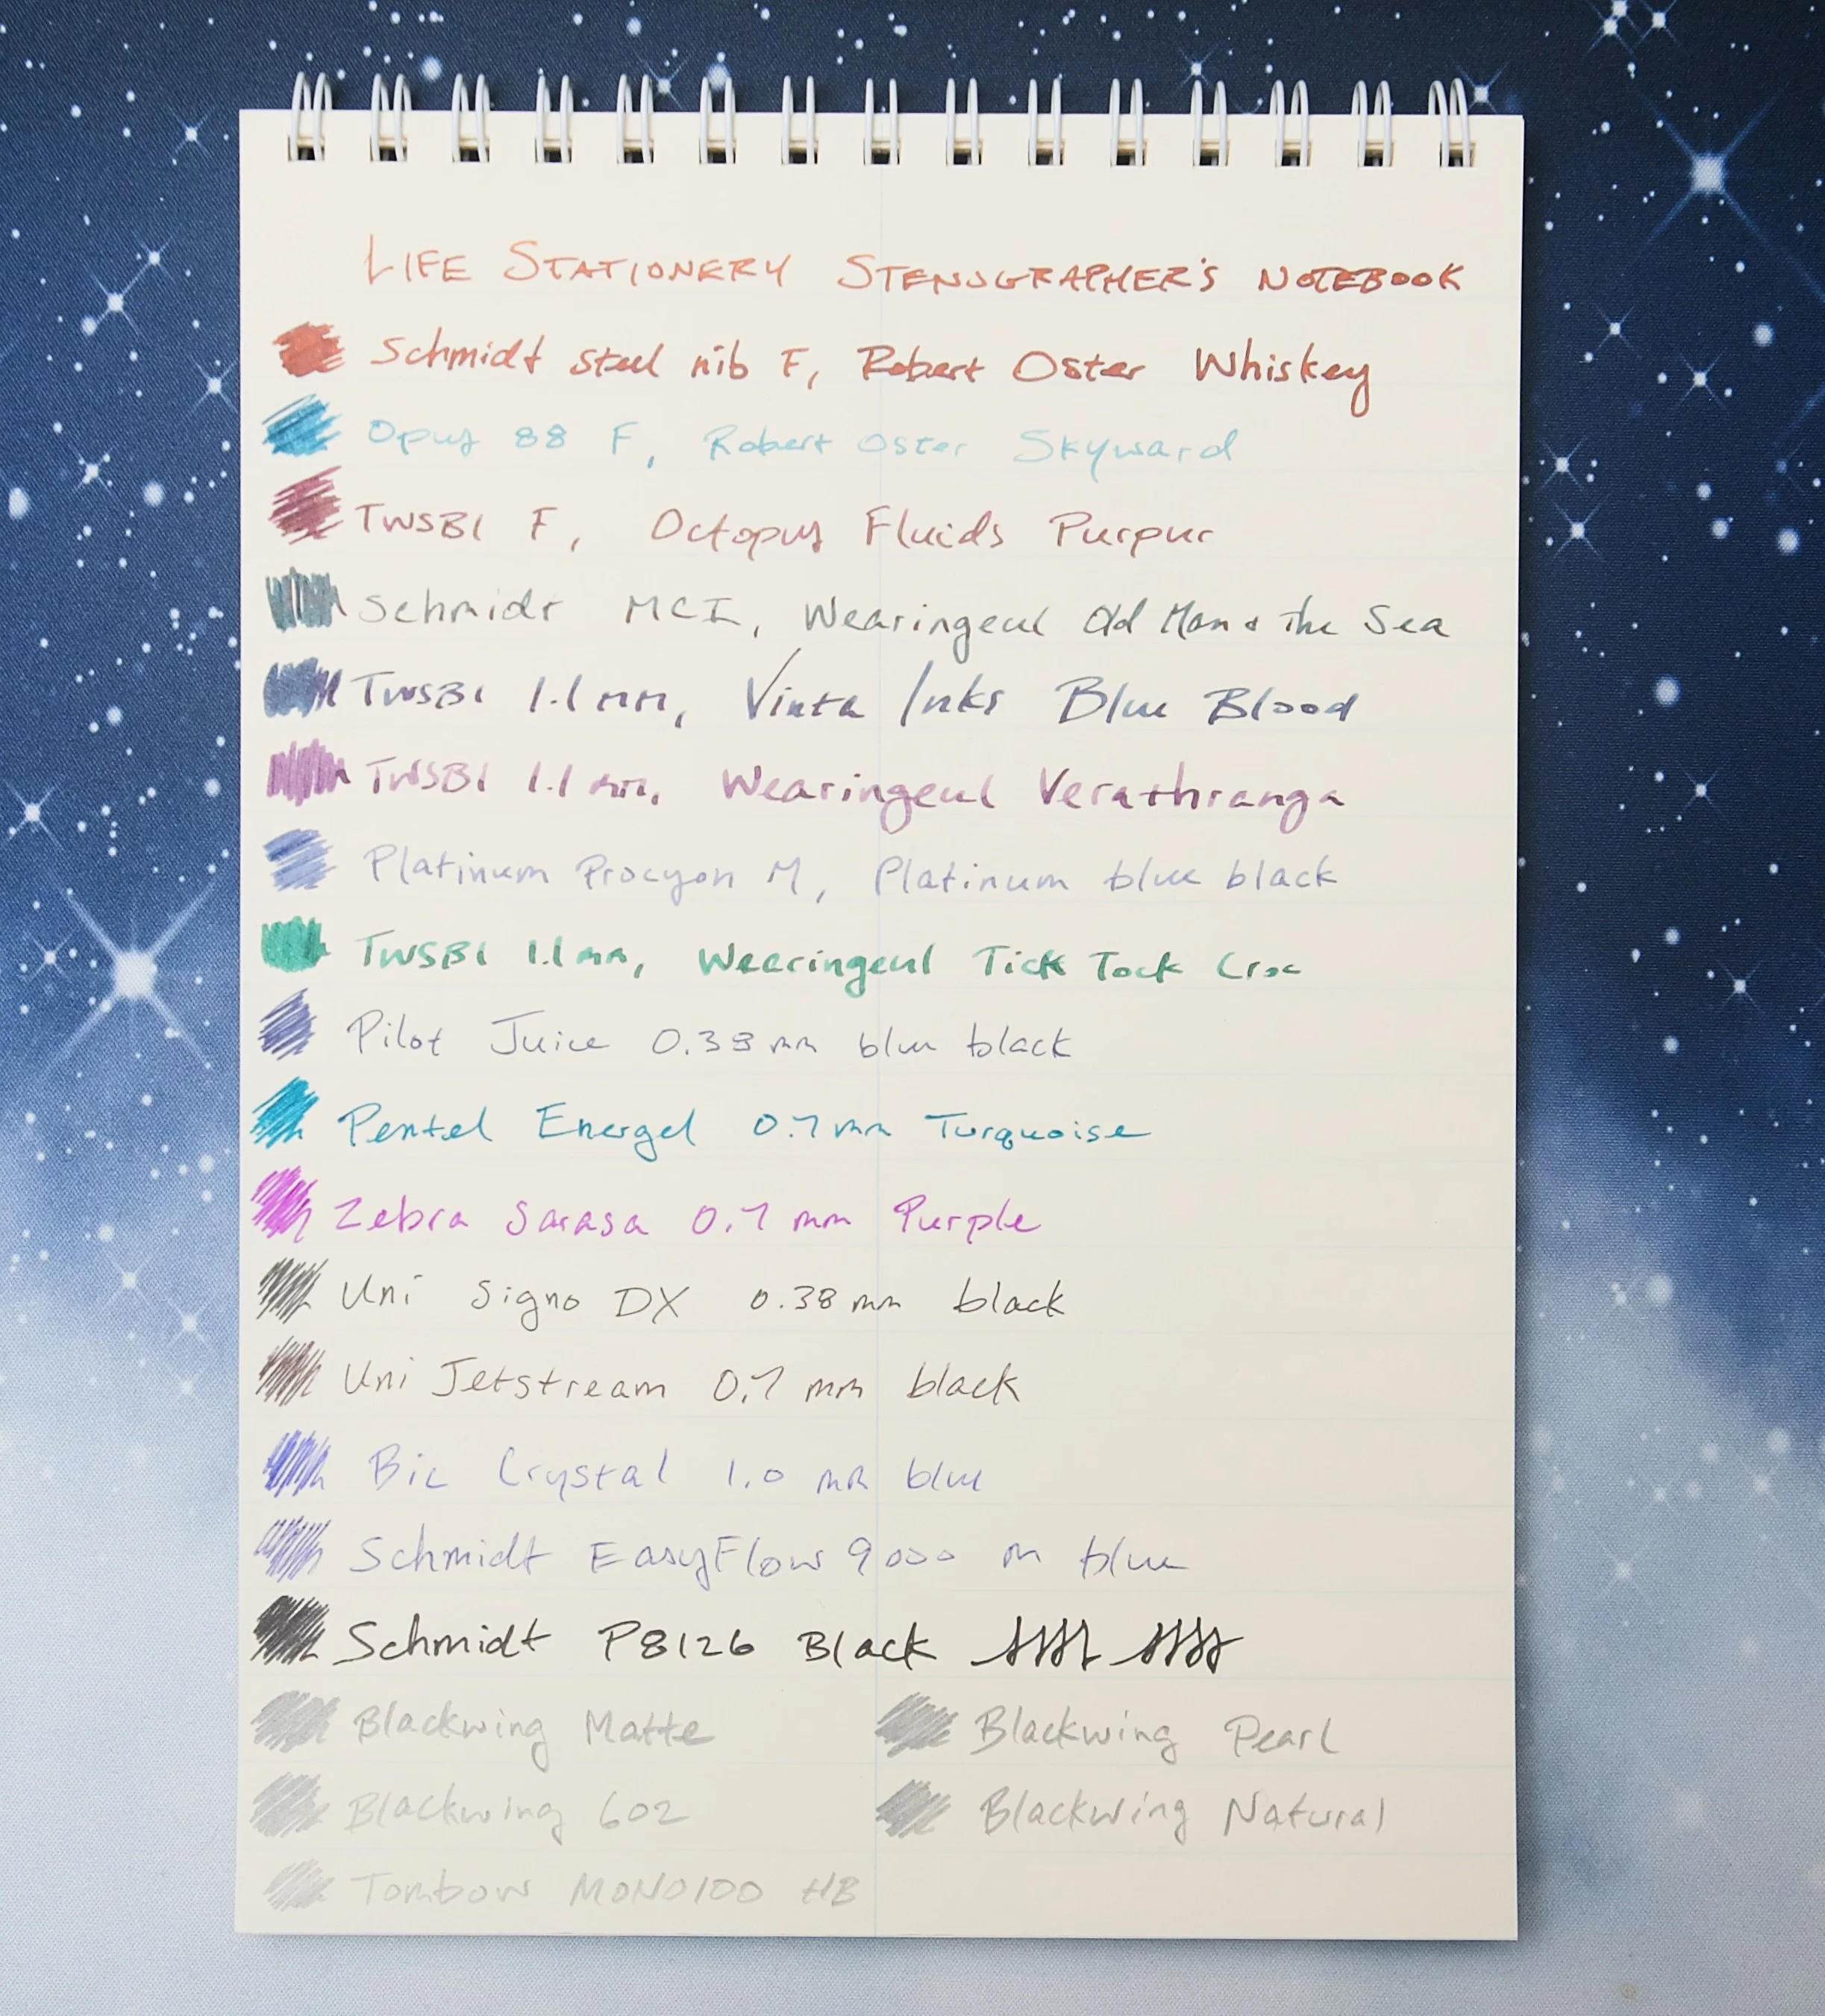 LIFE STATIONERY STENOGRAPHER'S NOTEBOOK
Schmidt steel nib F, Robert Oster Whiskey
Opus 88 F, Robert Oster Skyward
TWSBI F, Octopus Fluids Purpur
Schmidt MCI, Wearingeul Old Man & the Sea
TWSBI 1.1 mm, Vinta Inks Blue Blood
TWSBI 1.1 mm, Wearingeul Verathranga
Platinum Procyon M, Platinum blue black
TWSBI 1.1 mm, Wearingeul Tick Tock Croc
Pilot Juice 0.38 mm blue black
Pentel Energel 0.7 mm Turquoise
Zebra Sarasa 0.7 mm Purple
Uni Signo DX 0.38 mm black
Uni Jetstream 0.7 mm black
Bic Crystal 1.0 mm blue
Schmidt EasyFlow 9000 m blue
Schmidt P8126 Black
Blackwing Matte Blackwing Pearl
Blackwing 602 Blackwing Natural
Tombow MONO100 HB